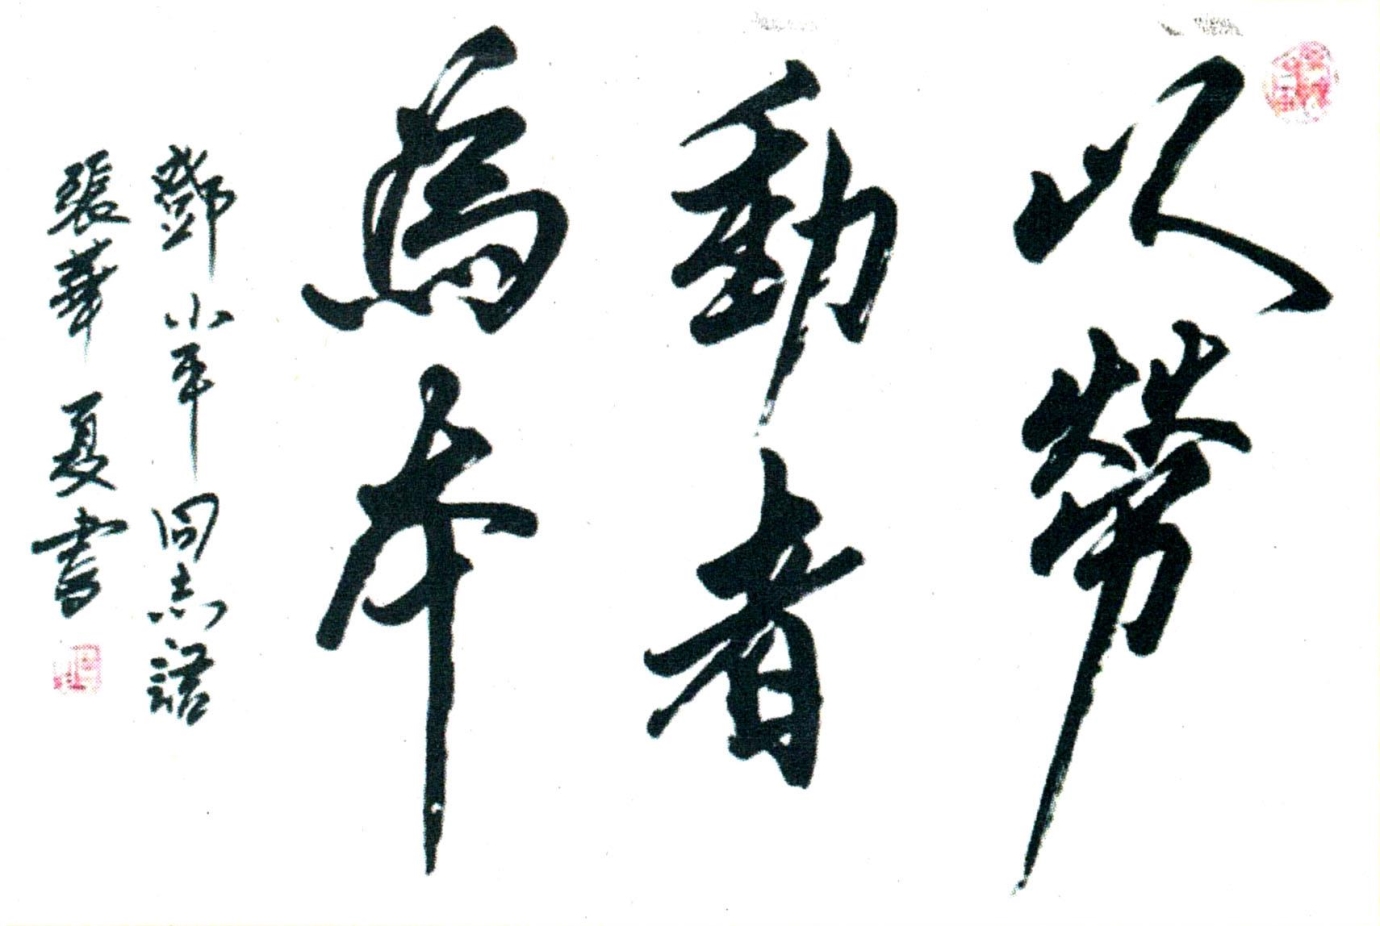 以勞
動者
為本
鄧小平同志語
張華夏書